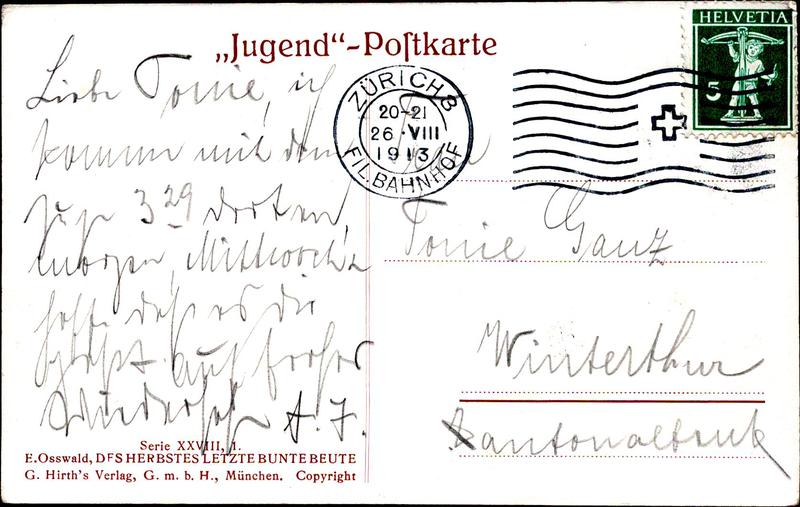 „Jugend“-Poſtkarte
HELVETIA
5
ZÜRICH 8
20-21
26·VIII
1913
FIL. BAHNHOF
Liebe Tonie, ich
komme mit dem
Zug 3 29 dorten,
morgen, Mittwoch
hoff daß es dir
paßt. Auf frohes
Wiederseh A. J.
Tonie Ganz
Winterthur
Kantonalbank
Serie XXVIII, 1.
E. Osswald, DES HERBSTES LETZTE BUNTE BEUTE
G. Hirth's Verlag, G. m. b. H., München. Copyright